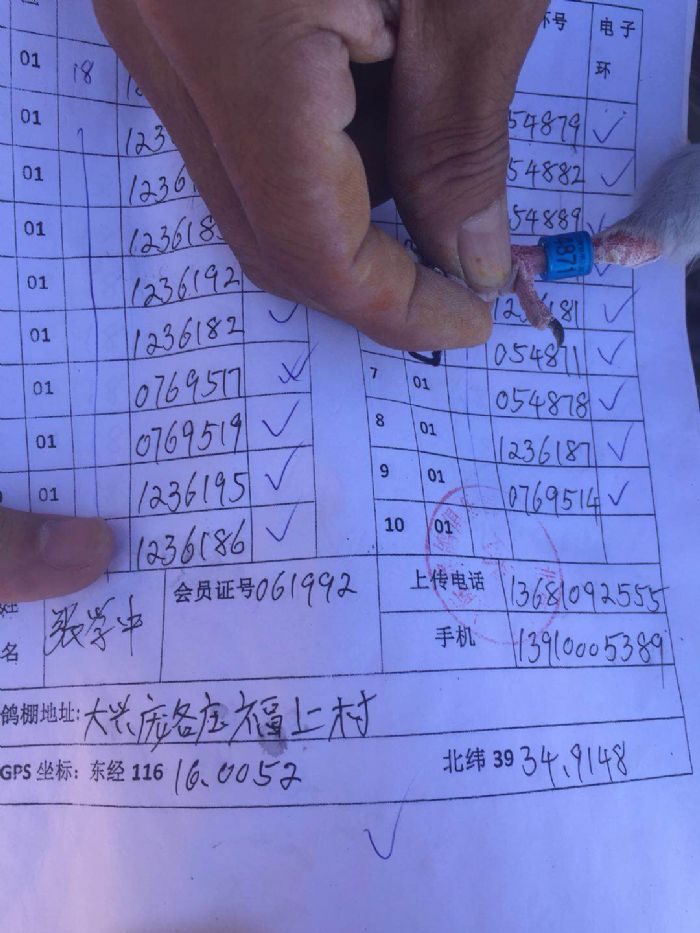 环号 电子环
01 18
01 54879 ✓
01 54882 ✓
01 54889
01 1236192
01 1236182 ✓ 054871 ✓
01 0769517 ✓ 7 01 054878 ✓
01 0769519 ✓ 8 01 1236187 ✓
01 1236195 ✓ 9 01 0769514 ✓
1236186 ✓ 10 01
871
名 张学中 会员证号 061992 上传电话 13681092555
手机 13910005389
鸽棚地址: 大兴庞各庄福上村
GPS 坐标: 东经 116 16.0052 北纬 39 34.9148
✓